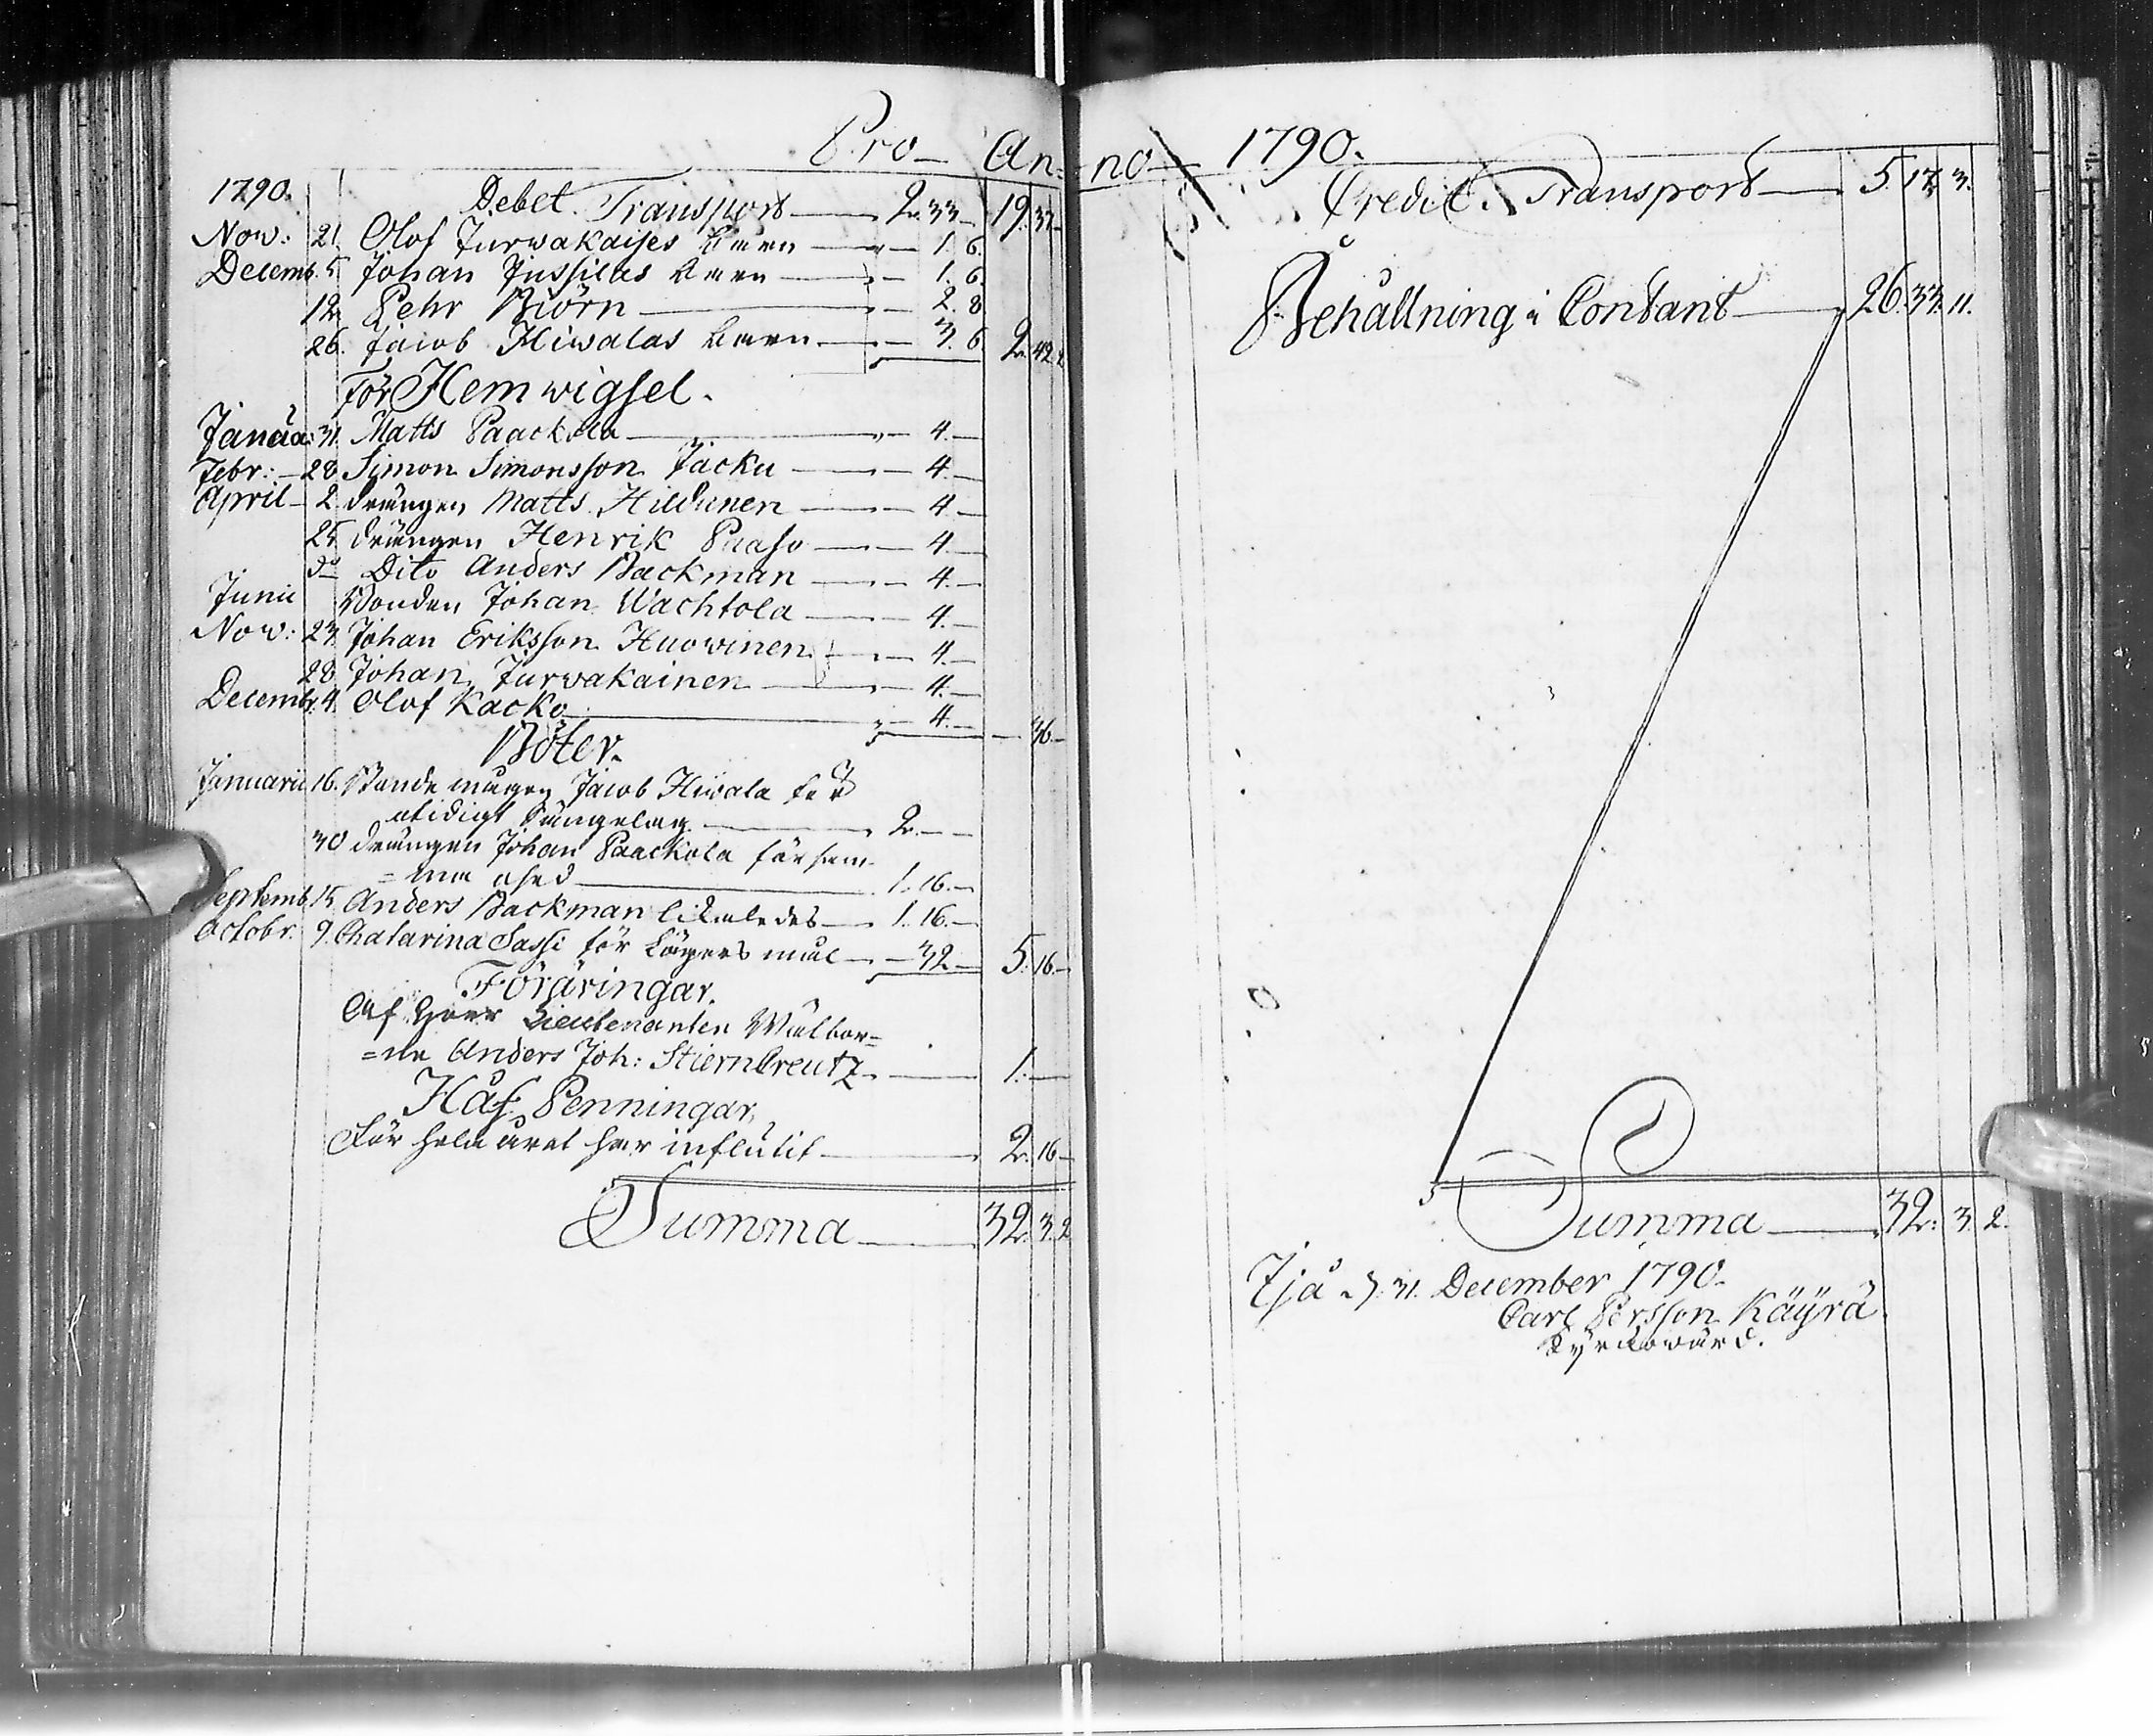 Pro Anno 1790.
1790. Debet. Transport 2. 33 19. 37
Now: 21. Olof Jurwakaises barn 1. 6.
Decemb. 5. Johan Jussilas barn 1. 6.
12. Pehr Biörn 2. 8
26. Jacob Hiwalas barn 3. 6 2. 42. 2
För Hemwigsel.
Janua: 31. Matts Paackola 4.
Febr: 28. Simon Simonsson Jacku 4.
April 2. drängen Matts Hildunen 4.
25. drängen Henrik Paaso 4.
do Dito Anders Backman 4.
Junii Bonden Johan Wachtola 4.
Now: 23. Johan Eriksson Huowinen 4.
28. Johan Jurwakainen 4.
Decemb. 4. Olof Kacko 4. 36
Böter.
Januarii 16. Bonde mågen Jacob Hiwala för
otidigt sängelag 2.
30 drängen Johan Paackola för sam=
=ma 1. 16.
Septemb. 15. Anders Backman likaledes 1. 16.
Octobr. 9. Chatarina Sassi för Lägersmål 32 5. 16.
Föräringar.
Af Herr Lieutenanten Wälbor=
=ne Anders Joh: Stierncreutz 1.
Håf Penningar,
För hela året har influtit 2. 16
Summa 32. 3. 2
Credit. Transport 5 17. 3.
Behållning i Contant 26. 33. 11.
Summa 32. 3. 2.
Ijå d. 31. December 1790.
Carl Persson Käyrä
Kyrkowärd.